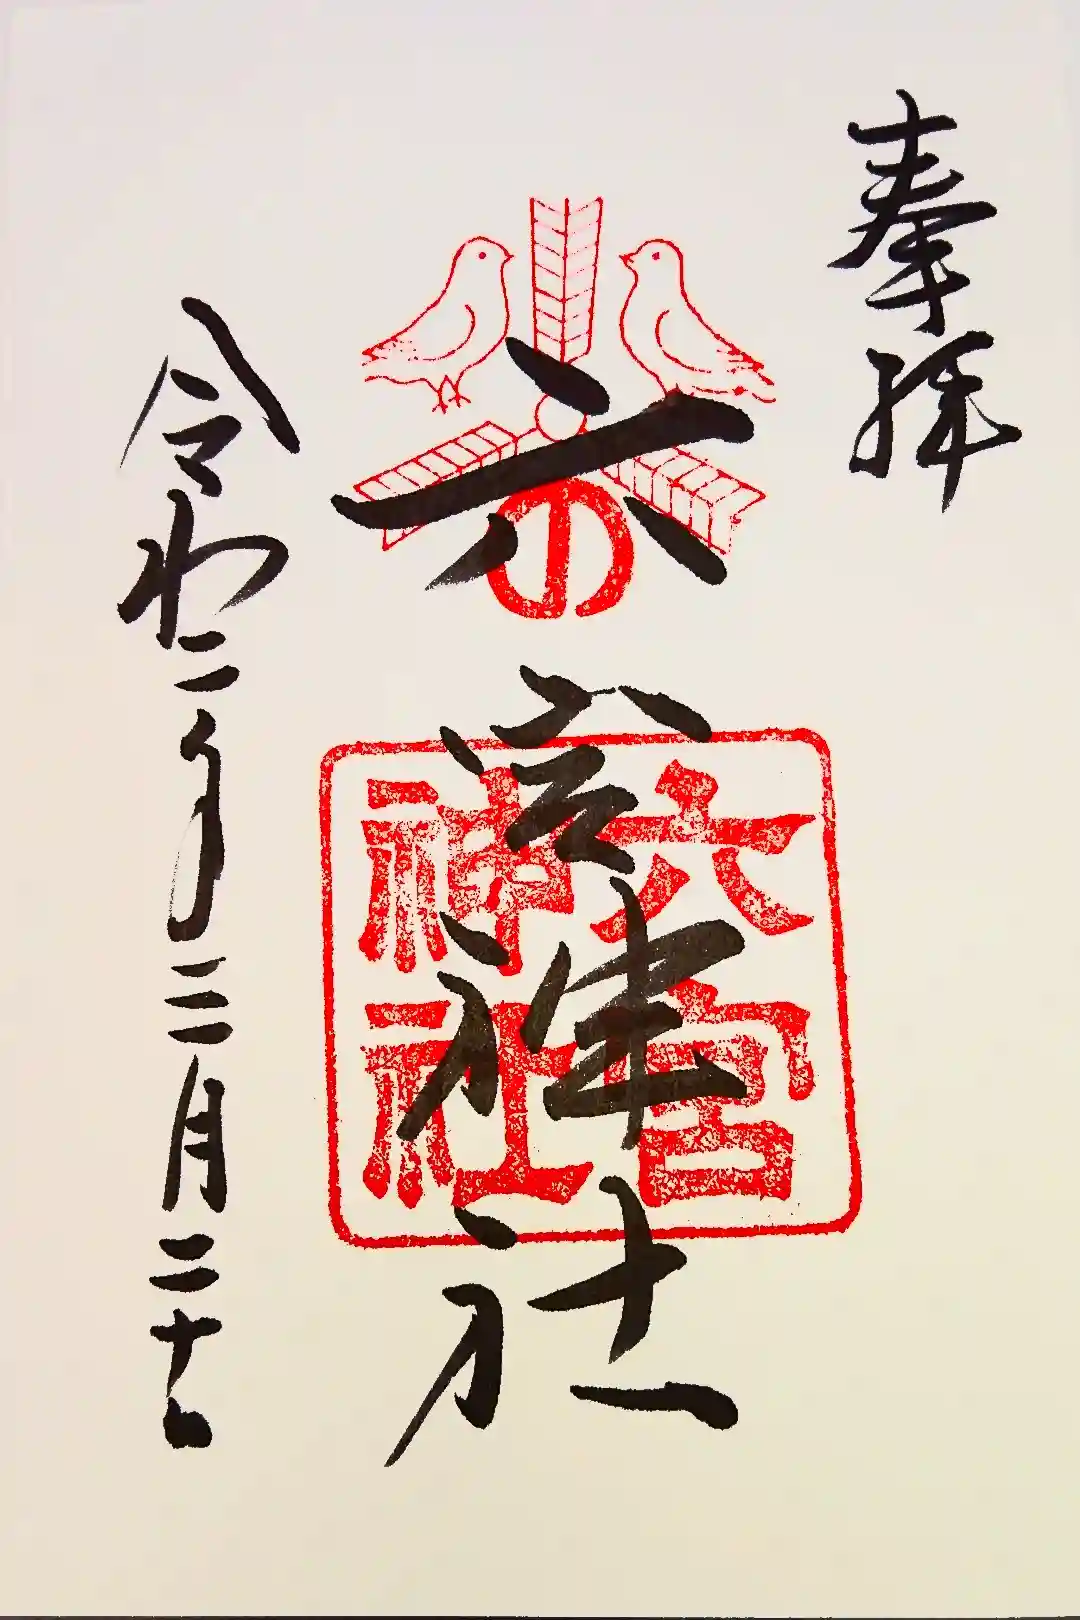 奉拝
六宮神社
六宮
神社
令和二年三月二十日